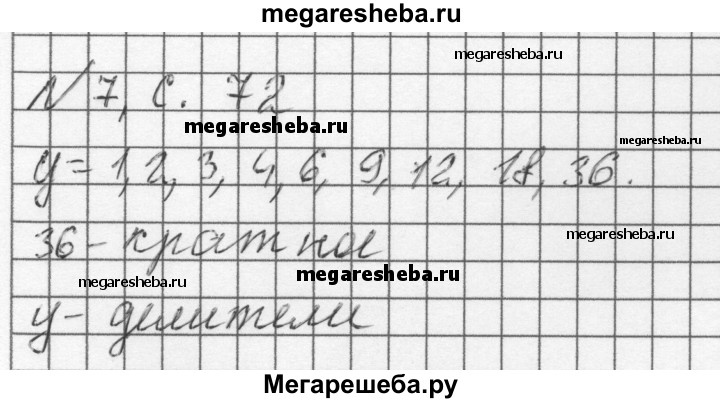 megaresheba.ru
megaresheba.ru
N 7, с. 72
megaresheba.ru
megaresheba.ru
y = 1, 2, 3, 4, 6, 9, 12, 18, 36.
megaresheba.ru
36 - кратное
megaresheba.ru
megaresheba.ru
y - делители
megaresheba.ru
Мегарешеба.ру